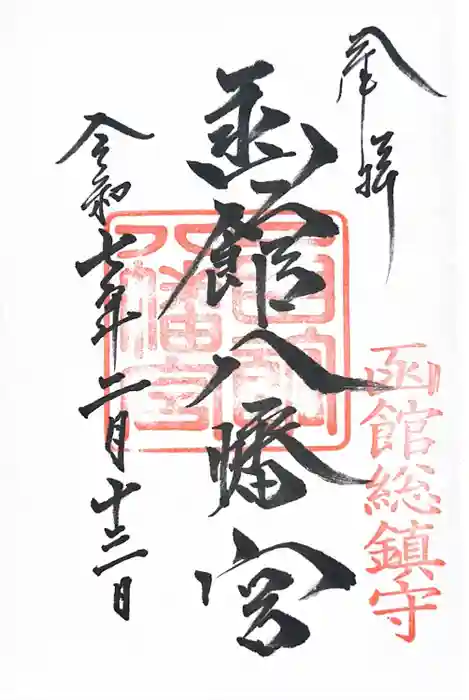 奉拝
函館総鎮守
函館八幡宮
函館八幡宮
令和七年二月十三日